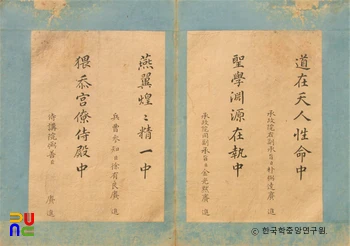 道在天人性命中
承政院左副承旨臣朴相德賡進
聖學淵源在執中
承政院同副承旨臣金光默賡進
燕翼煌〻精一中
兵曹參知臣徐有良賡進
猥忝宮僚侍殿中
侍講院弼善臣 賡進
© 한국학중앙연구원